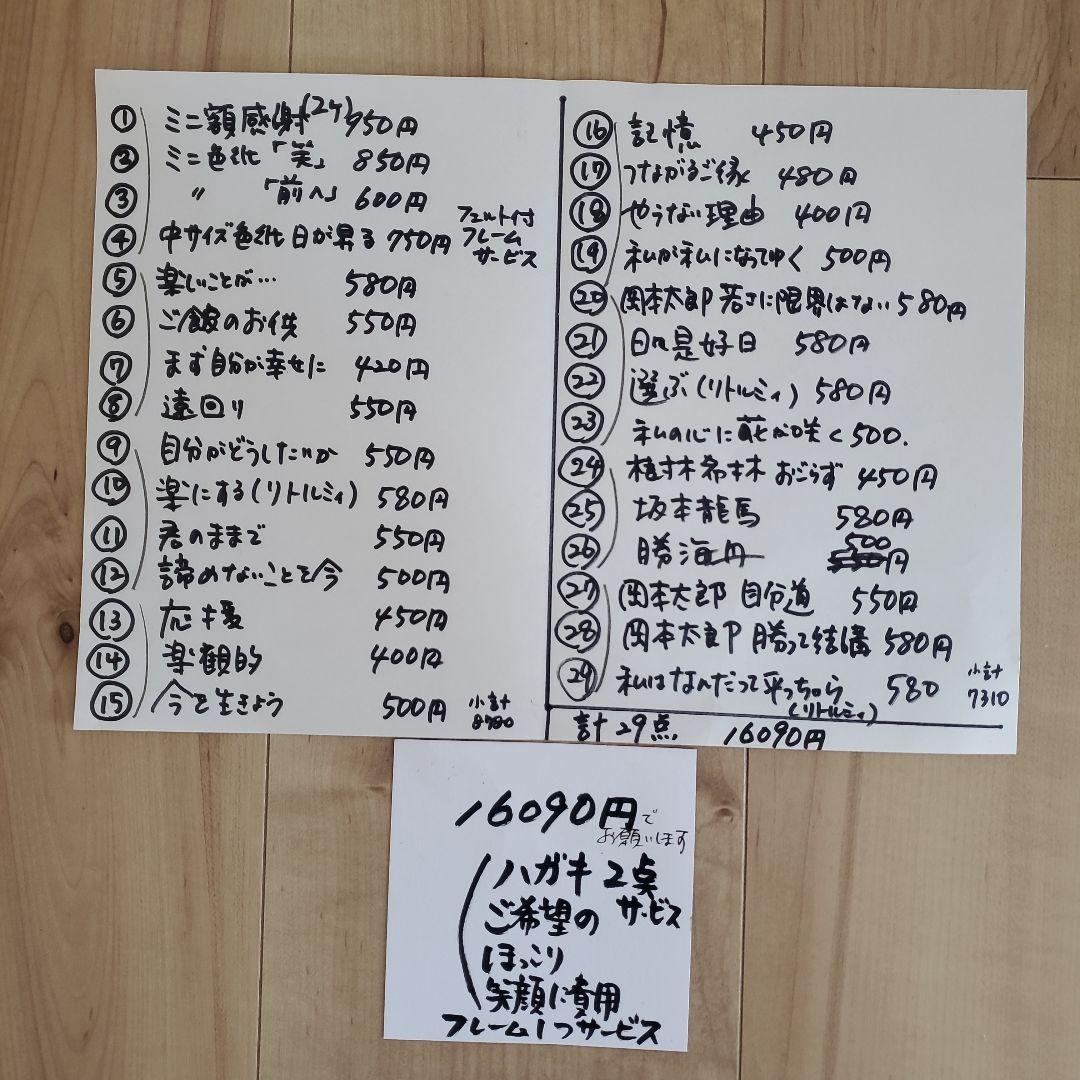 ① ミニ額感謝(2ケ) 950円
② ミニ色紙「笑」 850円
③ 〃 「前へ」 600円
④ 中サイズ色紙 日が昇る 750円
フェルト付
フレーム
サービス
⑤ 楽しいことが… 580円
⑥ ご飯のお供 550円
⑦ まず自分が幸せに 420円
⑧ 遠回り 550円
⑨ 自分がどうしたいか 550円
⑩ 楽にする(リトルミィ) 580円
⑪ 君のままで 550円
⑫ 諦めないことを今 500円
⑬ 応援 450円
⑭ 楽観的 400円
⑮ 今を生きよう 500円
小計
8780
⑯ 記憶 450円
⑰ つながるご縁 480円
⑱ やらない理由 400円
⑲ 私が私になってゆく 500円
⑳ 岡本太郎 若さに限界はない 580円
㉑ 日々是好日 580円
㉒ 選ぶ(リトルミィ) 580円
㉓ 私の心に花が咲く 500.
㉔ 樹木希林 おごらず 450円
㉕ 坂本龍馬 580円
㉖ 勝海舟 500円
㉗ 岡本太郎 自分道 550円
㉘ 岡本太郎 勝って結構 580円
㉙ 私はなんだって平っちゃら 580
(リトルミィ)
小計
7310
計29点 16090円
16090円で
お願いします
ハガキ2点
サービス
ご希望の
ほっこり
笑顔に費用
フレーム1つサービス